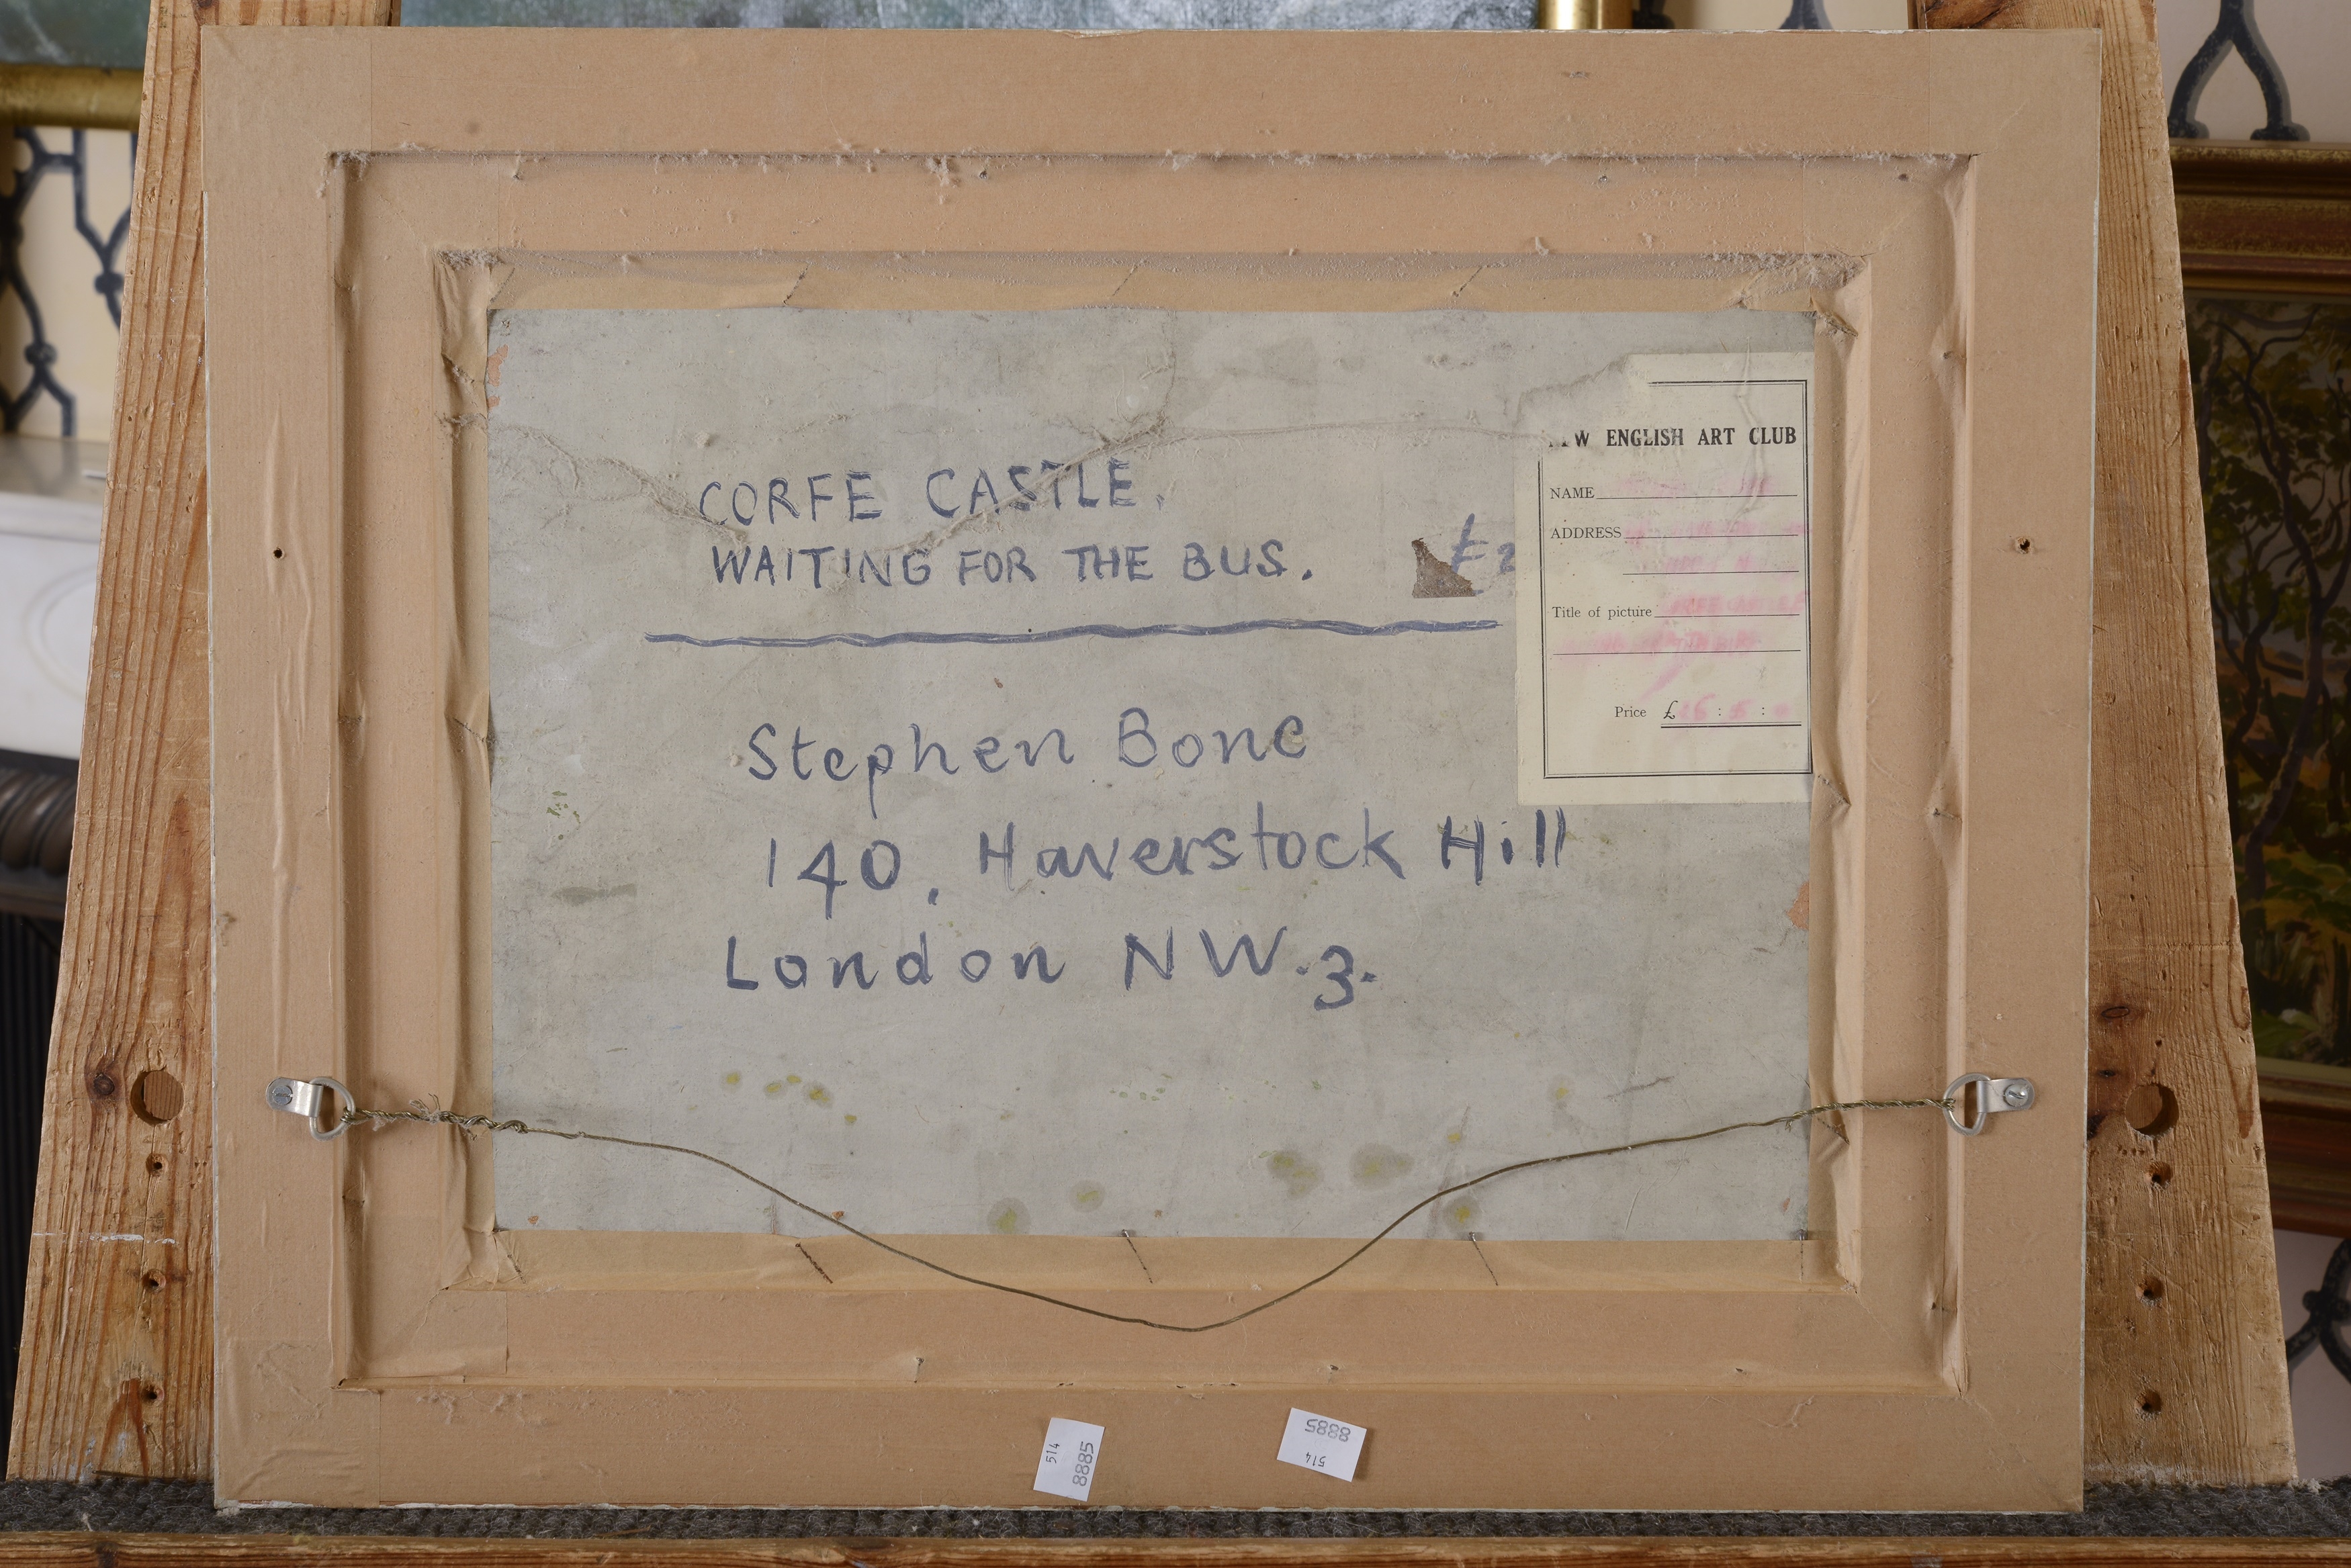 CORFE CASTLE.
WAITING FOR THE BUS. £2
Stephen Bone
140, Haverstock Hill
London NW.3.
ENGLISH ART CLUB
NAME
ADDRESS
Title of picture
CORFE CASTLE
Price £ : :
514
8885
8885
514